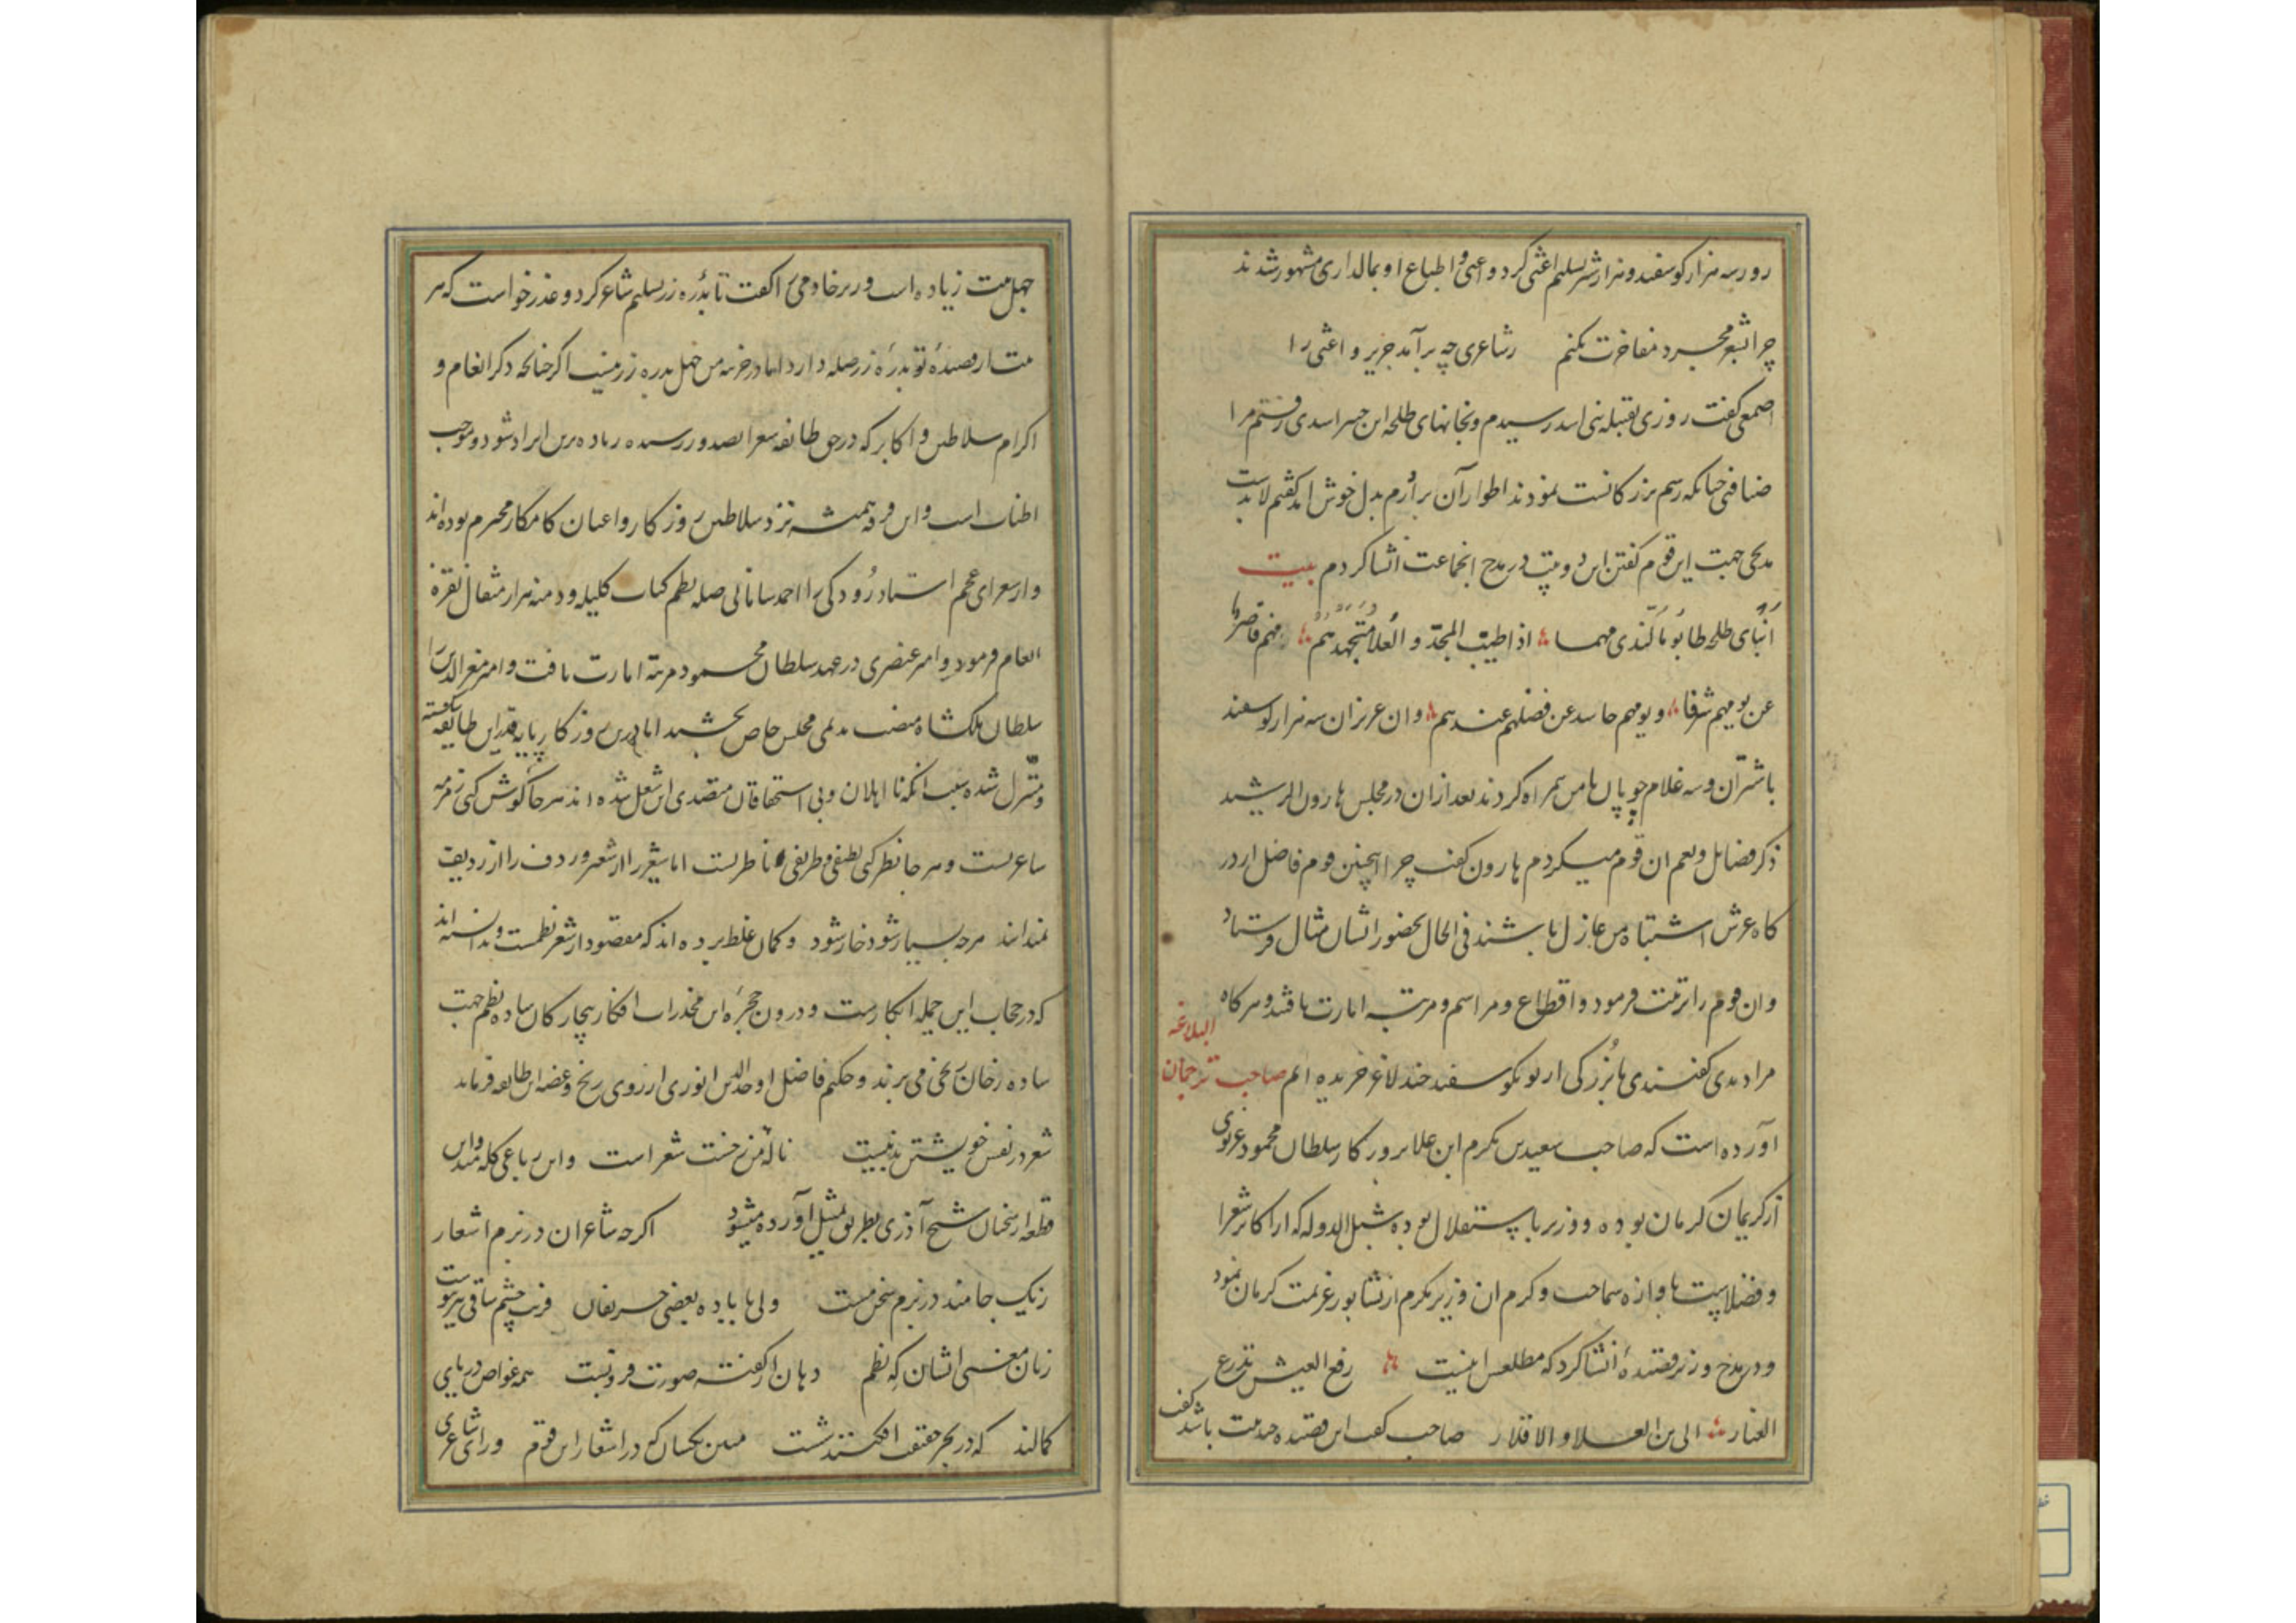 روز سه هزار گوسفند و هزار شتر تسلیم اعشی کرد و اعشی و اطباع او بمالداری مشهور شدند
چرا بشعر مجرد مفاخرت نکنم ز شاعری چه برآمد جریر و اعشی را
اصمعی گفت روزی بقبیله بنی اسد رسیدم و بخانهای طلحه ابن اسدی رفتم مرا
ضیافتی چنانکه رسم بزرگانست نمودند اطوار آن برارم بدل خوش آمد گفتم لابدست
مدحی جهت این قوم گفتن این دو بیت در مدح انجماعت انشا کردم بیت
عن یومهم شرفا و یومهم حاسد عن فضلهم عندهم و ان عزیزان سه هزار گوسفند
با شتران و سه غلام چوپان با من همراه کردند بعد ازان در مجلس هارون الرشید
ذکر فضایل و نعم ان قوم میکردم هارون گفت چرا اینچنین قوم فاضل از در
کاه عرش اشتباه من عازل باشند فی الحال بحضور ایشان مثال فرستاد
وان قوم را تربیت فرمود و اقطاع و مراسم و مرتبه امارت یافتند و هرگاه
مرا دیدی گفتندی ما بزرگی از تو بگوسفند چند لاغر خریده ایم صاحب ترجمان البلاغه
آورده است که صاحب سعید بن مکرم ابن علا بروزگار سلطان محمود غزنوی
از کریمان کرمان بوده و وزیر باستقلال بوده شبل الدوله که از اکابر شعرا
و فضلاست باوازه سماحت و کرم ان وزیر مکرم از نشابور عزیمت کرمان نمود
و در مدح وزیر قصیدهٔ انشا کرد که مطلعش اینست
صاحب گفت این قصیده چند بیت باشد گفت
چهل بیت زیاده است وزیر خادمی را گفت تا بدرهٔ زر تسلیم شاعر کرد و عذر خواست که هر
بیت از قصیدهٔ تو بدرهٔ زر صله دارد اما در خزینه من چهل بدره زر نیست اگر چنانچه ذکر انعام و
اکرام سلاطین و اکابر که در حق طایفه شعرا بصدور رسیده زیاده برین ایراد شود موجب
اطناب است و این فرقه همیشه نزد سلاطین روزگار و اعیان کامکار محترم بوده اند
و از شعرای عجم استاد رودکی را احمد سامانی صله نظم کتاب کلیله و دمنه هزار مثقال نقره
انعام فرمود و امیر عنصری در عهد سلطان محمود مرتبه امارت یافت و امیر معز الدین را
سلطان ملکشاه منصب ندیمی مجلس خاص بخشید اما درین روزگار پایه قدر این طایفه شکسته
و متنزل شده بسبب انکه نا اهلان و بی استحقاقان متصدی این شغل شده اند هر جا گوش کنی زمزمه
شاعریست و هر جا نظر کنی لطیفی و ظریفی ناظریست اما شعر را از شعیر و ردف را از ردیف
نمیدانند هرچه بسیار شود خوار شود و کمان غلط برده اند که مقصود از شعر نظمست و ندانسته اند
که در حجاب این جمله ابکارست و درون حجرهٔ این مخدرات افکار بیچارگان ساده نظم جهت
ساده رخان رنجی می برند و حکیم فاضل اوحد الدین انوری از روی رنج و غصه این طایفه فرماید
شعر در نفس خویشتن بد نیست ناله من ز خست شعر است و این رباعی گله مند این
قطعه از سخنان شیخ آذری بطریق تمثیل آورده میشود اگرچه شاعران در بزم اشعار
ز یک جامند در بزم سخن مست ولی با باده بعضی حریفان فریب چشم ساقی نیز پیوست
زبان معنی ایشان که نظم دهان از گفته صورت فرو بست همه غواص دریای
کمالند که در بحر حقیقت افکنند شست مبین یکسان که در اشعار این قوم ورای شاعری